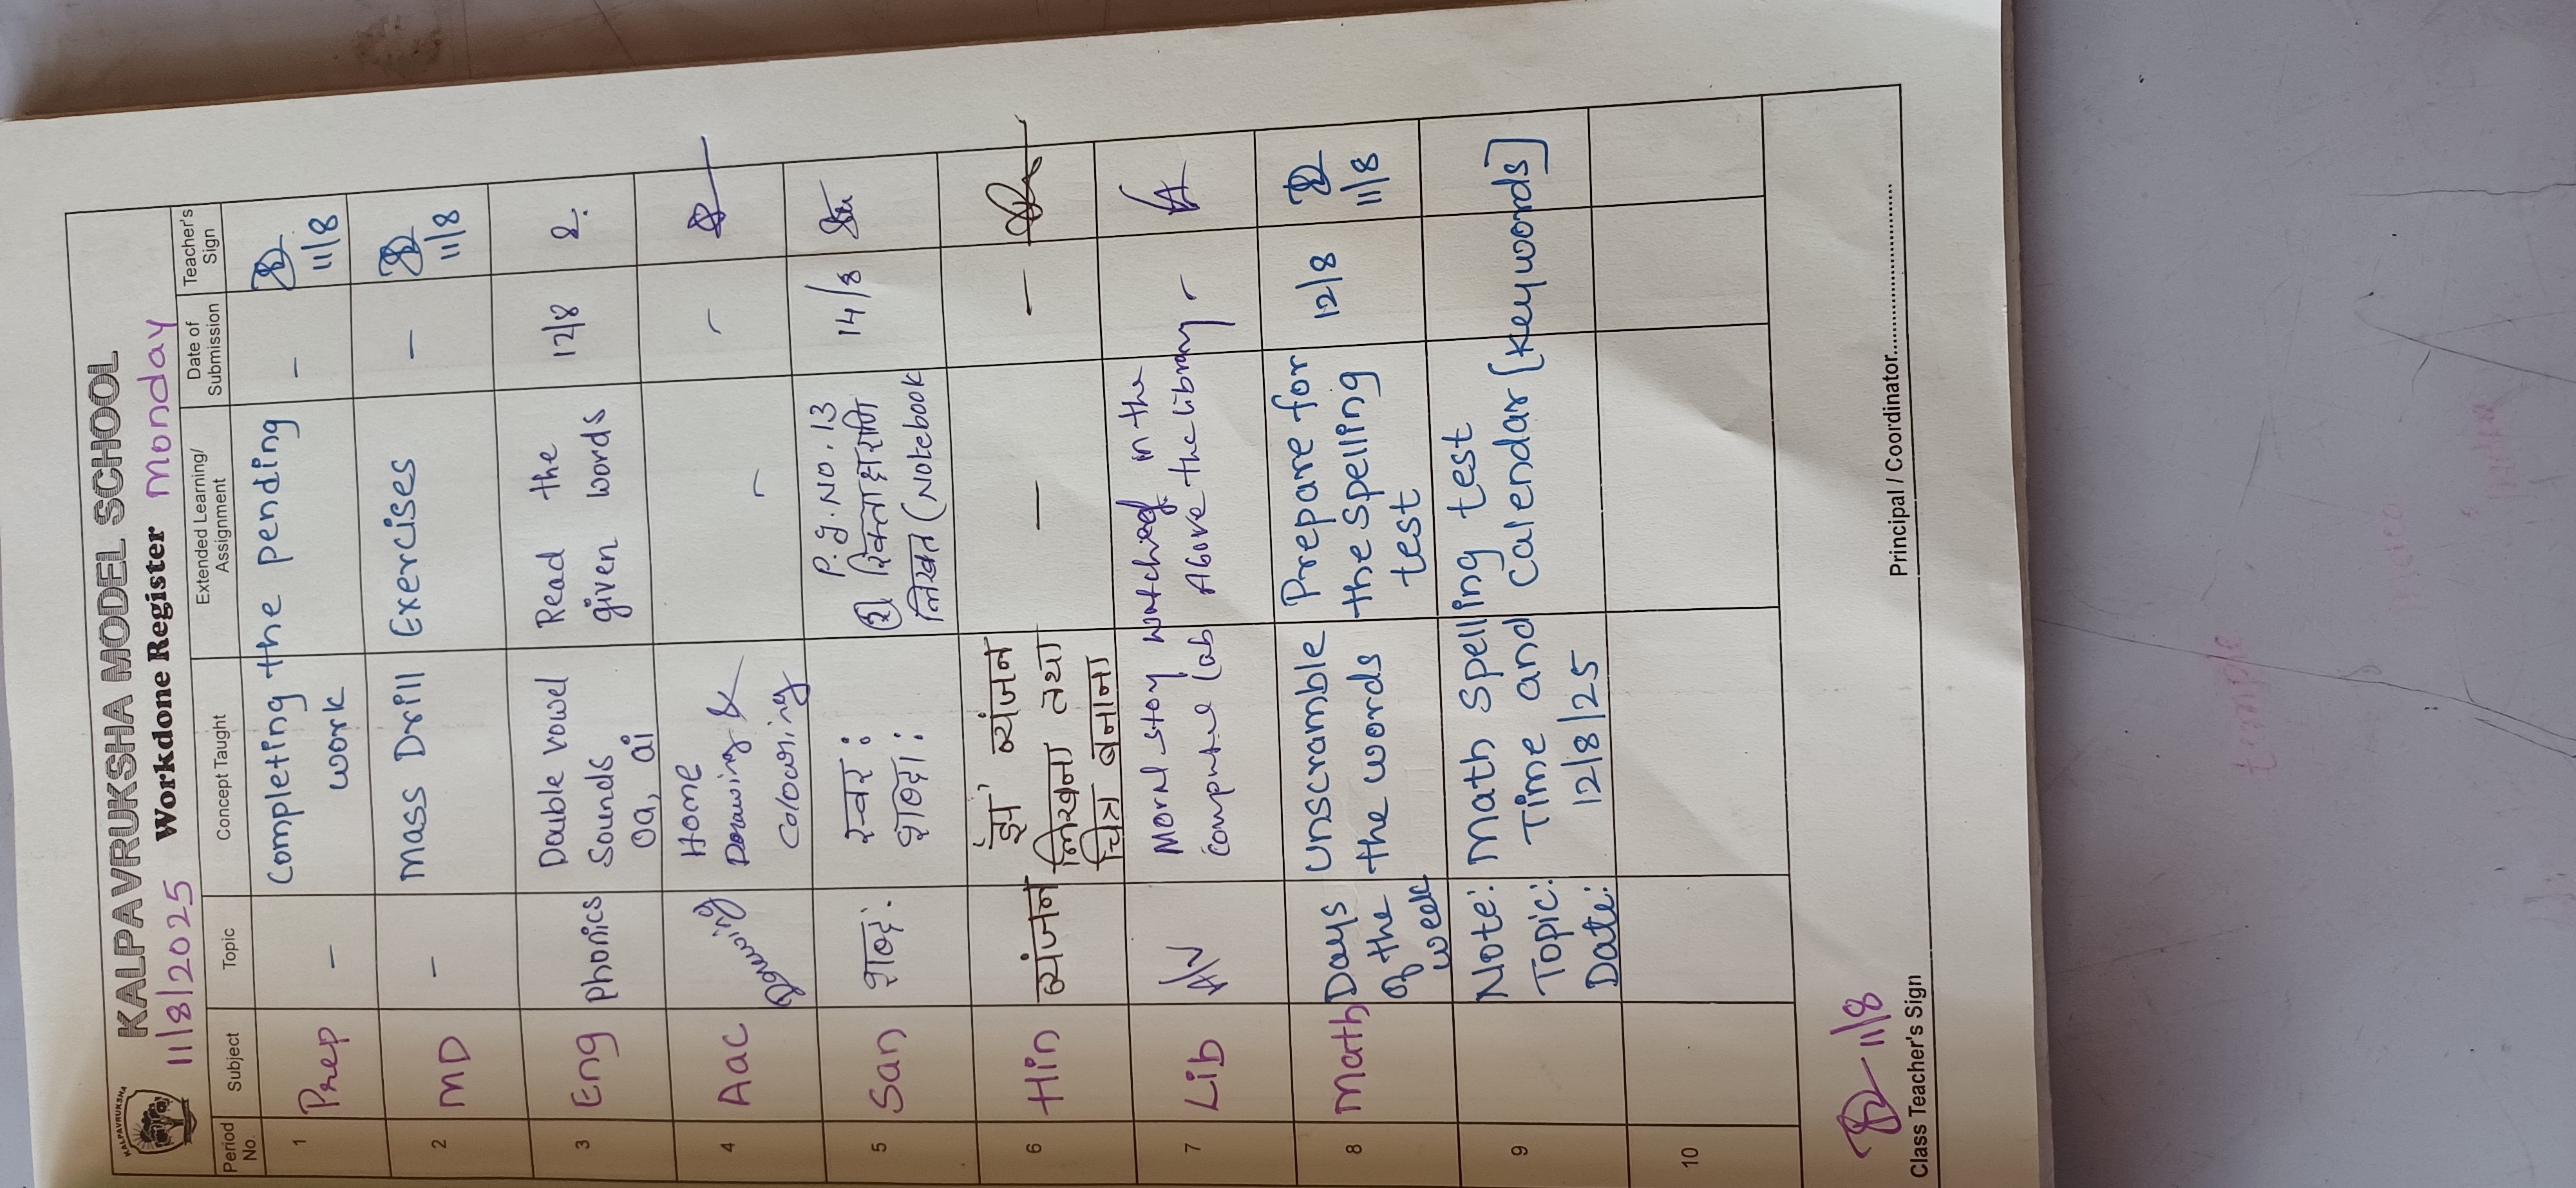 KALPAVRUKSHA
KALPAVRUKSHA MODEL SCHOOL
11/8/2025 Workdone Register Monday
Period No. Subject Topic Concept Taught Extended Learning/ Assignment Date of Submission Teacher's Sign
1 Prep - Completing the pending work - 11/8
2 MD - Mass Drill Exercises - 11/8
3 Eng Phonics Double vowel Read the 12/8
sounds given words
oa, ai
4 Aac Drawing Home - -
Drawing &
Colouring
5 San शब्दाः स्वराः P.g. No. 13 14/8
शब्दाः (2) रिक्तस्थानानि
लिखत (Notebook
6 Hin व्यंजन व्यंजन - -
लिखना तथा
चित्र बनाना
7 Lib A/V Moral story watched in the -
Computer Lab Above the library
8 Math Days Unscramble Prepare for 12/8 11/8
of the the words the spelling
week test
9 Note: Math spelling test
Topic: Time and Calendar [keywords]
Date: 12/8/25
10
11/8
Class Teacher's Sign Principal / Coordinator